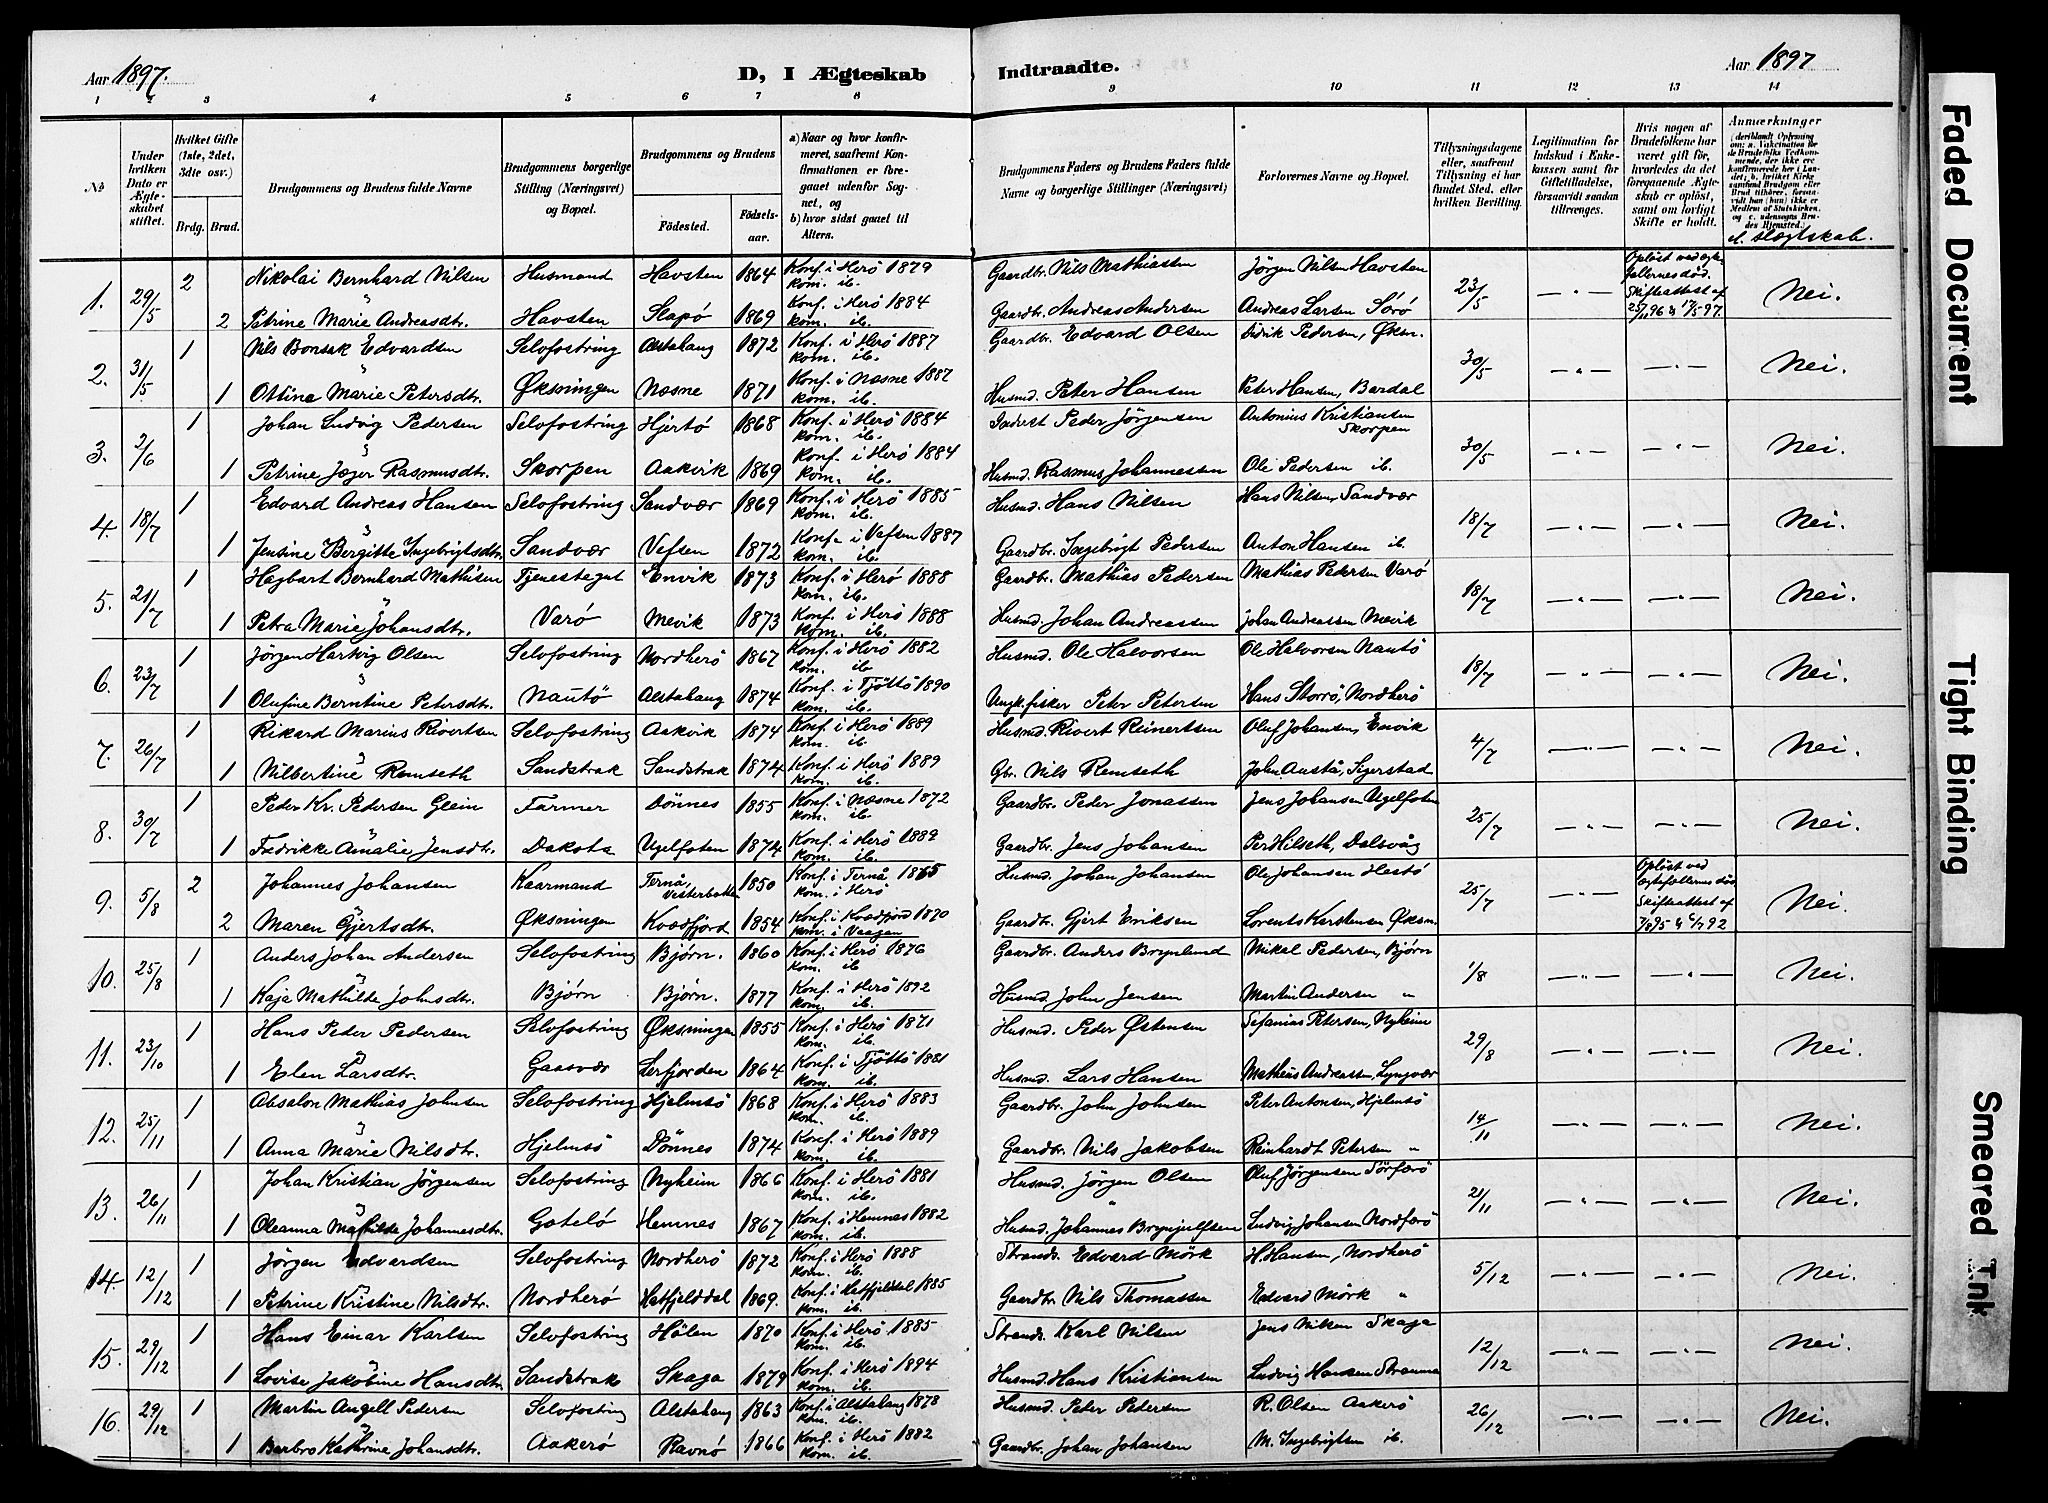 Aar 1897. D, I Ægteskab Indtraadte. Aar 1897
1 2 3 4 5 6 7 8 9 10 11 12 13 14
№
Under hvilken Dato er Ægteskabet stiftet.
Hvilket Gifte (1ste, 2det, 3die osv.)
Brdg. Brud.
Brudgommens og Brudens fulde Navne
Brudgommens borgerlige Stilling (Næringsvei) og Bopæl.
Brudgommens og Brudens
Fødested. Fødselsaar.
a) Naar og hvor konfirmeret, saafremt Konfirmationen er foregaaet udenfor Sognet, og
b) hvor sidst gaaet til Alters.
Brudgommens Faders og Brudens Faders fulde Navne og borgerlige Stillinger (Næringsvei)
Forlovernes Navne og Bopæl.
Tillysningsdagene eller, saafremt Tillysning ei har fundet Sted, efter hvilken Bevilling.
Legitimation for Indskud i Enkekassen samt for Giftetilladelse, forsaavidt saadan tiltrænges.
Hvis nogen af Brudefolkene har været gift før, hvorledes da det foregaaende Ægteskab er opløst, samt om lovligt Skifte er holdt.
Anmærkninger
(deriblandt Oplysning om: a. Vakcination for de Brudefolks Vedkommende, der ikke ere konfirmerede her i Landet; b. hvilket Kirkesamfund Brudgom eller Brud tilhører, forsaavidt han (hun) ikke er Medlem af Statskirken, og c. udensogns Brudes Hjemsted.)
d. slægtskab.
1. 29/5 2 Nikolai Bernhard Nilsen Husmand Havsten 1864 Konf. i Herö 1879 kom. ib. Gaardbr. Nils Mathiassen Jörgen Nilsen Havsten 23/5 Opløst ved ægtefællernes død. Skifteattest af 25/11 96 & 17/5 97. Nei.
2 Petrine Marie Andreasdtr. Havsten Slapø 1869 Konf. i Herö 1884 kom. ib. Gaardbr. Andreas Andersen Andreas Larsen Sörö
2. 31/5 1 Nils Bonsak Edvardsen Selvfostring Alstahaug 1872 Konf. i Herö 1887 kom. ib. Gaardbr. Edvard Olsen Didrik Pedersen, Øksn. 30/5 Nei.
1 Ottine Marie Petersdtr. Øksningen Næsne 1871 Konf. i Næsne 1887 kom. ib. Husmd. Peter Hansen Peter Hansen, Bardal
3. 3/6 1 Johan Ludvig Pedersen Selvfostring Hjertö 1868 Konf. i Herö 1884 kom. ib. Inderst Peder Jörgensen Antonius Kristiansen Skorpen 30/5 Nei.
1 Petrine Jæger Rasmusdtr. Skorpen Aakvik 1869 Konf. i Herö 1884 kom. ib. Husmd. Rasmus Johannessen Ole Pedersen ib.
4. 18/7 1 Edvard Andreas Hansen Selofostring Sandvær 1869 Konf. i Herö 1885 kom. ib. Husmd. Hans Nilsen Hans Nilsen, Sandvær 18/7 Nei.
1 Jensine Bergitte Ingebrigtsdtr. Sandvær Vefsen 1872 Konf. i Vefsen 1887 kom. ib. Gaardbr. Ingebrigt Pedersen Anton Hansen ib.
5. 21/7 1 Hagbart Bernhard Mathisen Tjenestegut Envik 1873 Konf. i Herö 1888 kom. ib. Gaardbr. Mathias Pedersen Mathias Pedersen Varö 18/7 Nei.
1 Petra Marie Johansdtr. Varö Mevik 1873 Konf. i Herö 1888 kom. ib. Husmd. Johan Andreassen Johan Andreassen Mevik
6. 23/7 1 Jörgen Hartvig Olsen Selofostring Nordherö 1867 Konf. i Herö 1882 kom. ib Husmd. Ole Halvorsen Ole Halvorsen Nautö 18/7 Nei.
1 Olufine Berntine Petersdtr. Nautö Alstahaug 1874 Konf. i Tjöttö 1890 kom. ib. Ungk. fisker Peter Petersen Hans Storrö, Nordherö
7. 26/7 1 Rikard Marius Rivertsen Selofostring Aakvik 1874 Konf. i Herö 1889 kom. ib. Husmd. Rivert Reinertsen Oluf Johansen, Envik 4/7 Nei.
1 Nilbertine Remseth Sandstrak Sandstrak 1874 Konf. i Herö 1889 kom. ib. Gbr. Nils Remseth John Austå, Sigerstad
8. 30/7 1 Peder Kr. Pedersen Glein Farmer Dönnes 1855 Konf. i Næsne 1872 kom. ib. Gaardbr. Peder Jonassen Jens Johansen Ugelfoten 25/7 Nei.
1 Fredrikke Amalie Jensdtr. Dakota Ugelfoten 1874 Konf. i Herö 1889 kom. ib. Gaardbr. Jens Johansen Per Hilseth, Dalsvåg
9. 5/8 2 Johannes Johansen Kaarmand Ternå, Vesterbotten 1850 Konf. i Ternå 1865 kom. i Herö Husmd. Johan Johansen Ole Johansen Hestö 25/7 Opløst ved ægtefællernes død Skifteattest af Nei.
2 Maren Gjertsdtr. Øksningen Kvædfjord 1854 Konf. i Kvædfjord 1870 kom. i Vaagan Gaardbr. Gjert Eriksen Lorents Karstensen Øksn.
10. 25/8 1 Anders Johan Andersen Selofostring Bjørn. 1860 Konf. i Herö 1876 kom. ib. Gaardbr. Anders Brynlund Mikal Pedersen, Bjørn 1/8 Nei.
1 Kaja Mathilde Johnsdtr. Bjørn Bjørn. 1877 Konf. i Herö 1892 kom. ib. Husmd. John Jensen Martin Andersen "
11. 23/10 1 Hans Peder Pedersen Selofostring Øksningen 1855 Konf. i Herö 1871 kom. ib. Husmd. Peder Østensen Sefanias Petersen, Nyheim 29/8 Nei.
1 Elen Larsdtr. Gaasvær Lerfjorden 1864 Konf. i Tjöttö 1881 kom. ib. Husmd. Lars Hansen Matheus Andreassen, Lyngvær
12. 25/11 1 Absalon Mathias Johnsen Selofostring Hjelmsö 1868 Konf. i Herö 1883 kom. ib. Gaardbr. John Johnsen Peter Antonsen, Hjelmsö 14/11 Nei.
1 Anna Marie Nilsdtr. Hjelmsö Dönnes 1874 Konf. i Herö 1889 kom. ib. Gaardbr. Nils Jakobsen Reinhardt Petersen "
13. 26/11 1 Johan Kristian Jörgensen Selofostring Nyheim 1866 Konf. i Herö 1881 kom. ib. Husmd. Jörgen Olsen Oluf Jörgensen Sörfærö 21/11 Nei.
1 Oleanna Mathilde Johannesdtr. Gotelö Hemnes 1867 Konf. i Hemnes 1882 kom. ib. Husmd. Johannes Brynjulfsen Ludvig Johansen Nordferö
14. 12/12 1 Jörgen Edvardsen Selofostring Nordherö 1872 Konf. i Herö 1888 kom. ib. Strands. Edvard Mörk H. Hansen, Nordherö 5/12 Nei.
1 Petrine Kristine Nilsdtr. Nordherö Hatfjelddal 1869. Konf. i Hatfjelddal 1885 kom. ib. Gaardbr. Nils Thomassen Edvard Mörk "
15. 29/12 1 Hans Einar Karlsen Selofostring Hölen 1870 Konf. i Herö 1885 kom. ib. Strands. Karl Nilsen Jens Nilsen Skaga 12/12 Nei.
1 Lovise Jakobine Hansdtr. Sandstrak Skaga 1879 Konf. i Herö 1894 kom. ib. Husmd. Hans Kristiansen Ludvig Hansen Strauma
16. 29/12 1 Martin Angell Pedersen Selofostring Alstahaug 1863 Konf. i Alstahaug 1878 kom. ib. Husmd. Peter Pedersen R. Olsen Aakerö 26/12 Nei.
1 Barbro Kathrine Johansdtr. Aakerö Ravnö 1866 Konf. i Herö 1882 kom. ib. Gaardbr. Johan Johansen M. Ingebrigtsen ib.
Faded Document
Tight Binding
Smeared Ink